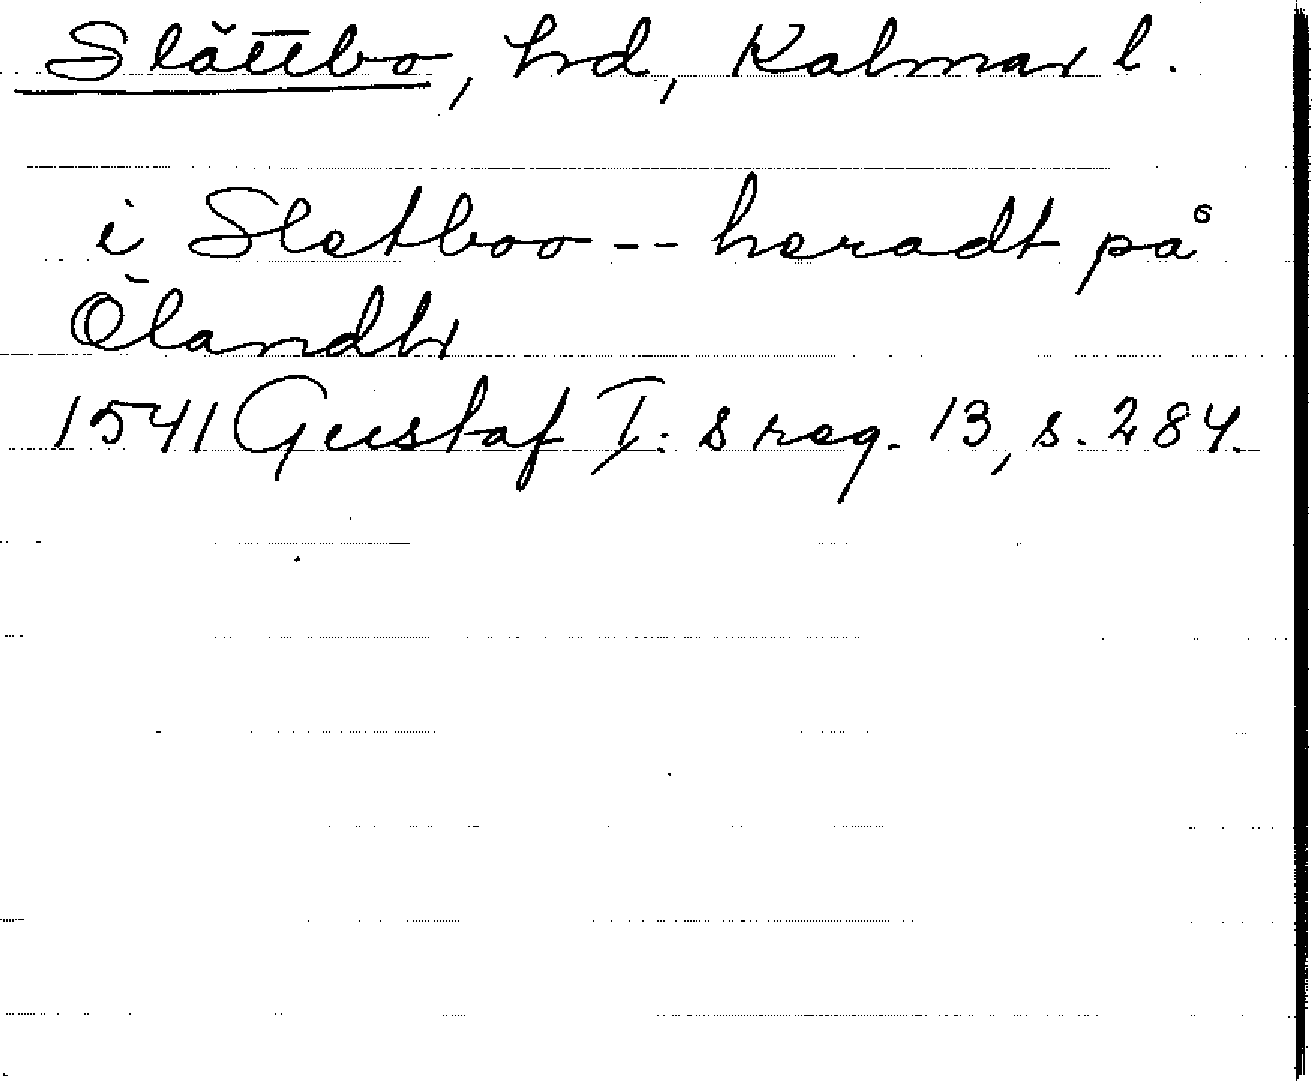 Slättbo, hd, Kalmar l.
i Sletboo -- heradt på
Ölandh
1541 Gustaf I:s reg. 13, s. 284.